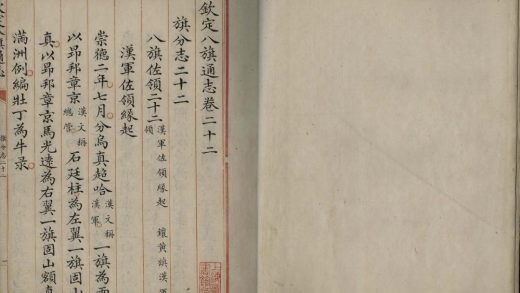 欽定八旗通志卷二十二
旗分志二十二
八旗佐領二十二 漢軍佐領緣起 鑲黃旗漢軍
領
漢軍佐領緣起
崇德二年七月分烏真超哈漢文稱漢軍一旗為兩
以昂邦章京漢文稱總管石廷柱為左翼一旗固山
真以昂邦章京馬光遠為右翼一旗固山額真
滿洲例編壯丁為牛录
八旗通志